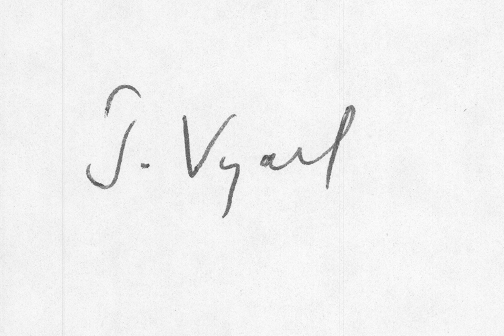 J. Vyard